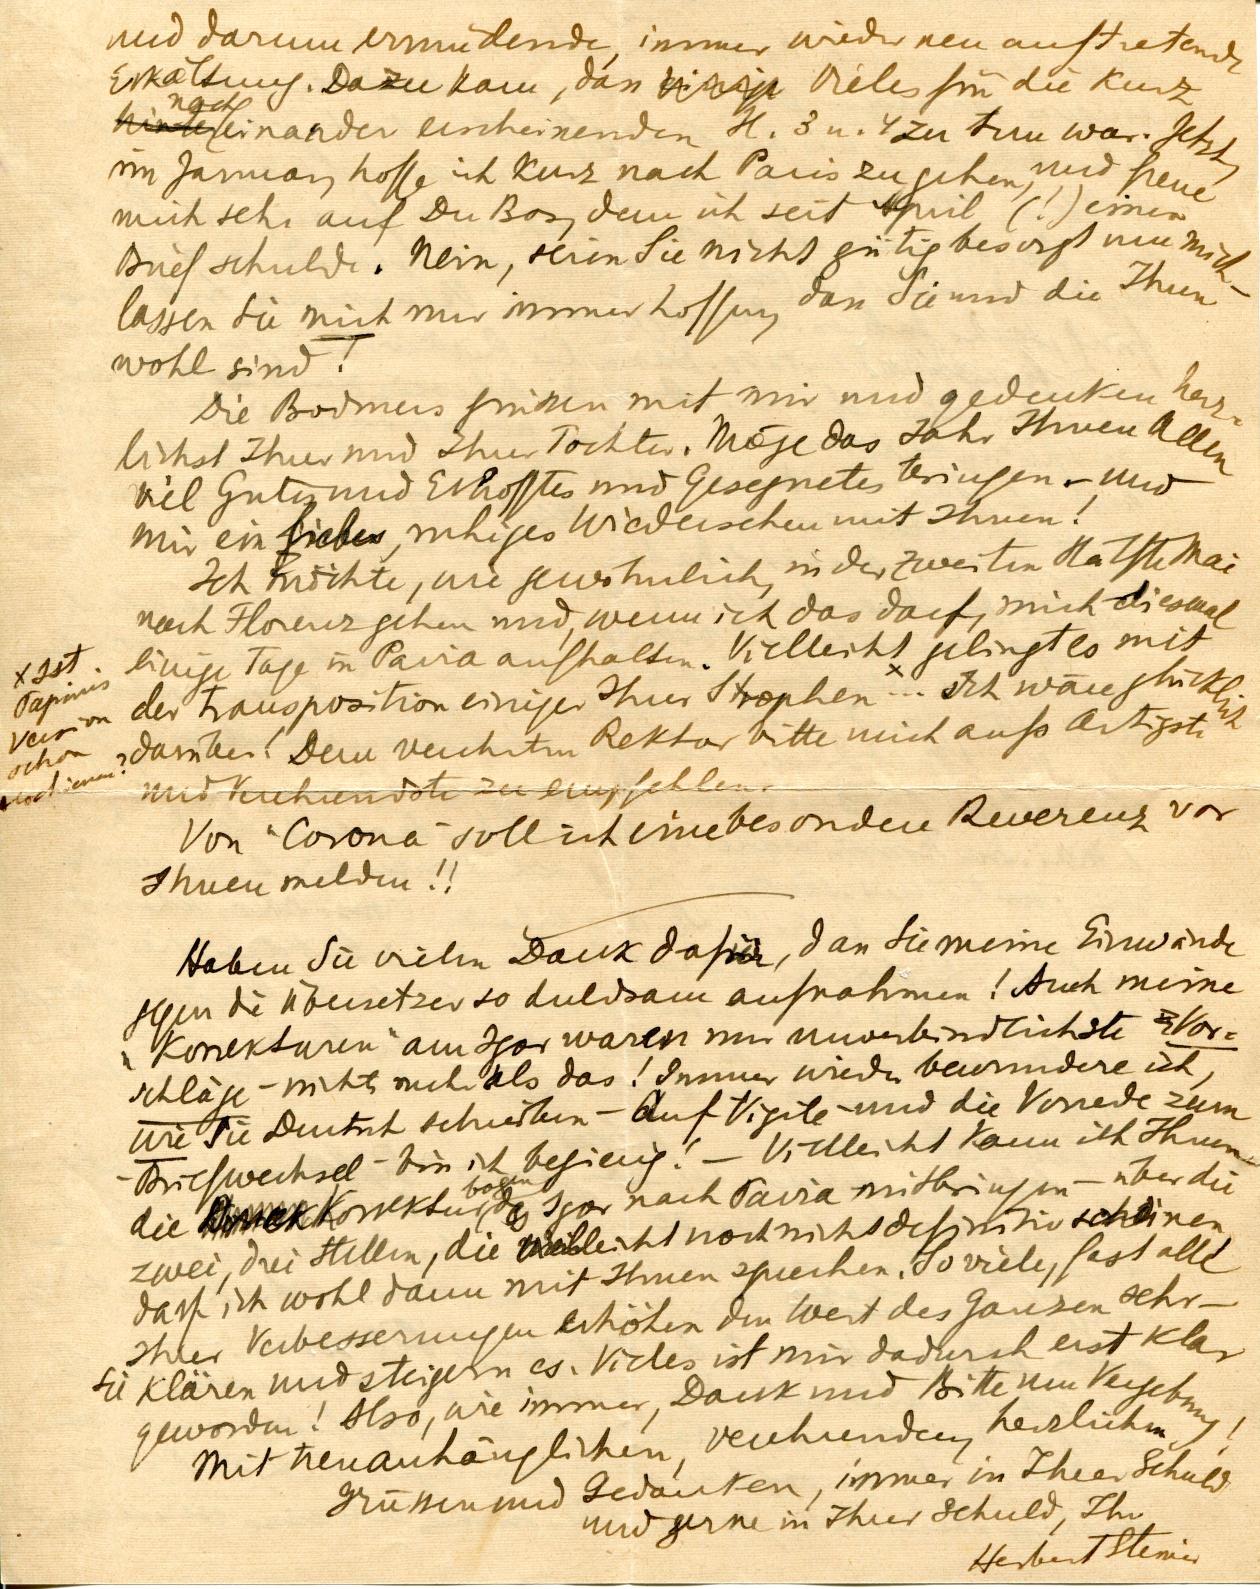 und darum ermüdende, immer wieder neu auftretende
Erkältung. Dazu kam, dass Vieles für die kurz
nach
einander erscheinenden H. 3 u. 4 zu tun war. Jetzt,
im Januar, hoffe ich kurz nach Paris zu gehen, und freue
mich sehr auf Du Bos, dem ich seit April (!) einen
Brief schulde. Nein, seien Sie nicht gütig besorgt um mich –
lassen Sie mich nur immer hoffen, dass Sie und die Ihren
wohl sind!
Die Bodmers grüssen mit mir und gedenken herz-
lichst Ihrer und Ihrer Tochter. Möge das Jahr Ihnen Allen
viel Gutes und Erhofftes und Gesegnetes bringen – und
mir ein liebes, ruhiges Wiedersehen mit Ihnen!
Ich möchte, wie gewöhnlich, in der zweiten Hälfte Mai
nach Florenz gehen und, wenn ich das darf, mich diesmal
einige Tage in Pavia aufhalten. Vielleicht gelingt es mit
der Transposition einiger Ihrer Strophen x... Ich wäre glücklich
darüber! Dem verehrten Rektor bitte mich aufs Artigste
und Verehrendste zu empfehlen.
x Ist
Papinis
Version
schon
erschienen?
Von "Corona" soll ich eine besondere Reverenz vor
Ihnen melden!!
Haben Sie vielen Dank dafür, dass Sie meine Einwände
gegen die Übersetzer so duldsam aufnahmen! Auch meine
"Korrekturen" am Igor waren nur unverbindlichste Vor-
schläge – nicht mehr als das! Immer wieder bewundere ich,
wie Sie Deutsch schreiben – Auf Vigile und die Vorrede zum
Briefwechsel bin ich begierig! – Vielleicht kann ich Ihnen
die Korrekturbogen des Igor nach Pavia mitbringen – über die
zwei, drei Stellen, die vielleicht noch nicht definitiv scheinen,
darf ich wohl dann mit Ihnen sprechen. So viele, fast alle
Ihrer Verbesserungen erhöhen den Wert des Ganzen sehr –
Sie klären und steigern es. Vieles ist mir dadurch erst klar
geworden! Also, wie immer, Dank und Bitte um Vergebung!
Mit treuanhänglichen, verehrenden, herzlichen
Grüssen und Gedanken, immer in Ihrer Schuld
und gerne in Ihrer Schuld, Ihr
Herbert Steiner